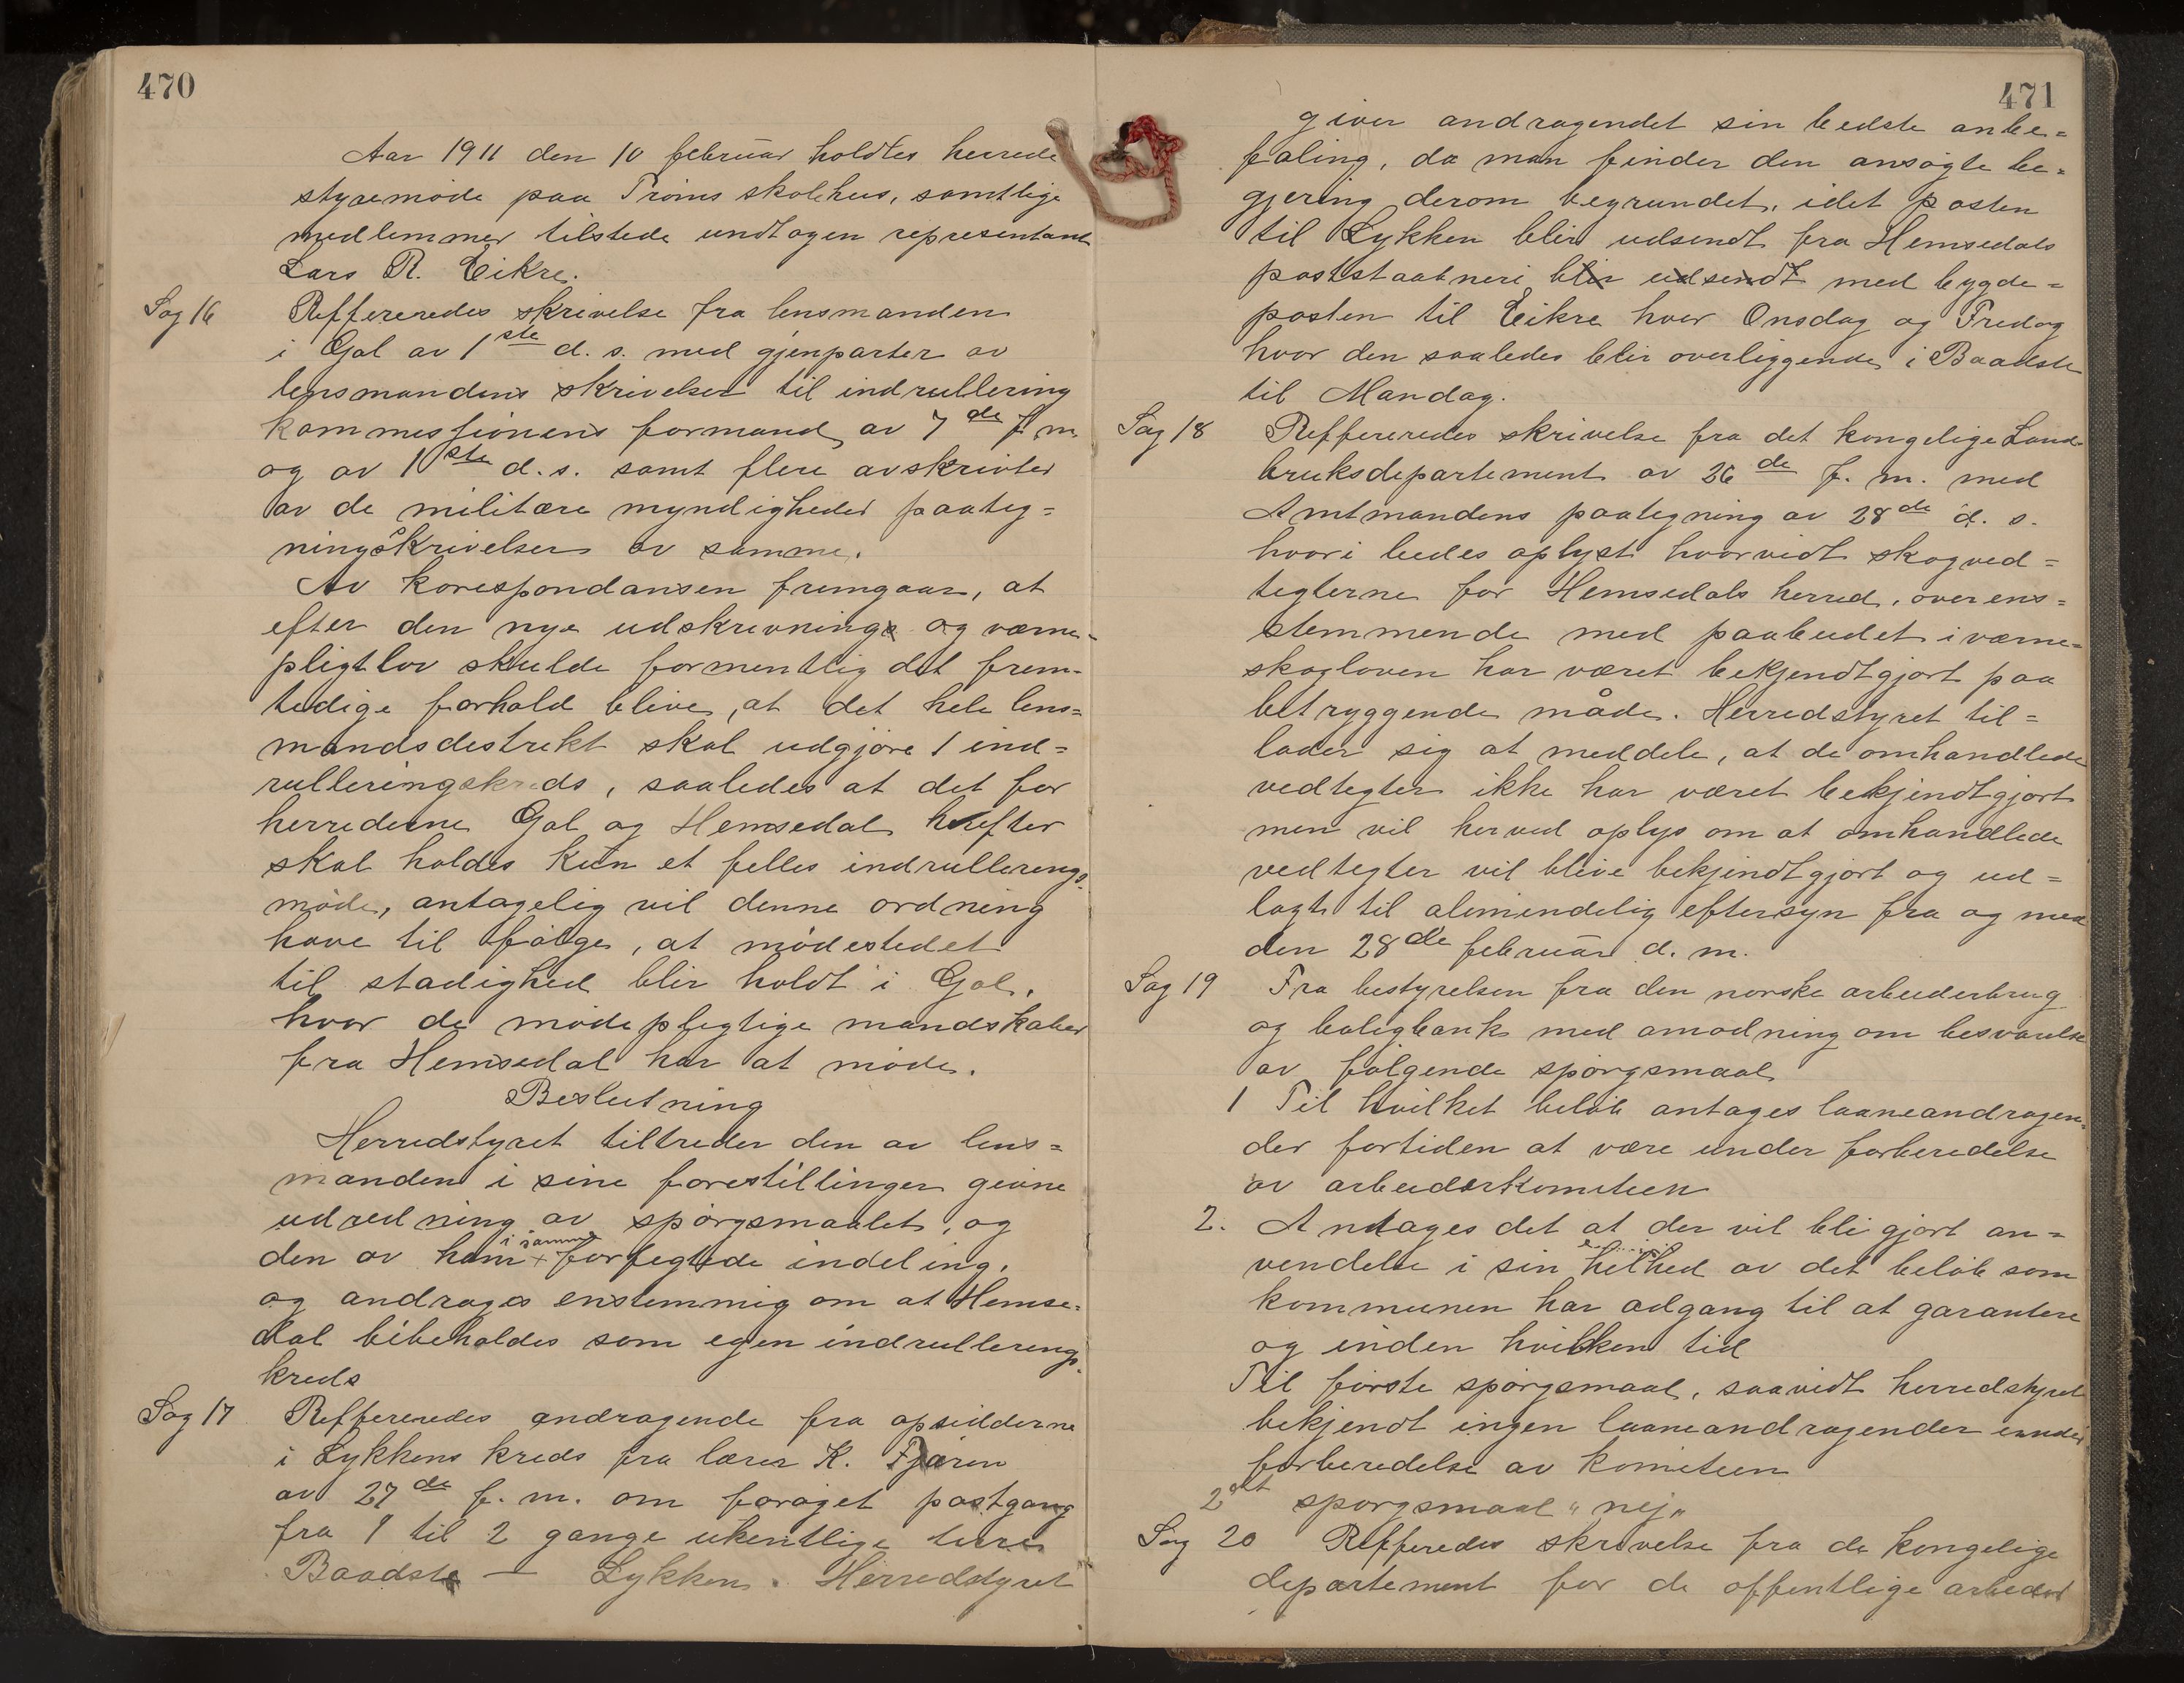 470
Aar 1911 den 10 februar holdtes herreds
styremöde paa Tröims skolehus, samtlige
medlemmer tilstede undtagen representant
Lars R. Eikre.
Sag 16 Reffereredes skrivelse fra lensmanden
i Gol av 1ste d. s. med gjenparter av
lensmandens skrivelser til indrullering
kommessionens formand av 7de f. m.
og av 1ste d. s. samt flere avskrivter
av de militære myndigheder paateg=
ningsskrivelser av samme.
Av korespondansen fremgaar, at
efter den nye udskrivnings og værne=
pligtlov skulde formentlig det frem=
tedige forhold blive, at det hele lens=
mandsdestrikt skal udgjöre 1 ind=
rulleringskreds, saaledes at det for
herrederne Gol og Hemsedal herefter
skal holdes kun et felles indrullerengs=
möde, antagelig vil denne ordning
have til fölge, at mödestedet
til stadighed blir holdt i Gol,
hvor de mödeplegtige mandskaber
fra Hemsedal har at möde.
Beslutning
Herredstyret tiltreder den av lens=
manden i sine forestillinger givne
udredning av spörgsmaalet, og
den av ham i samme forfegtede indeling,
og andrages enstemmig om at Hemse=
dal bibeholdes som egen indrullerengs=
kreds
Sag 17 Reffereredes andragende fra opsidderne
i Lykkens kreds fra lærer K.
av 27de f. m. om foröget postgang
fra 1 til 2 gange ukentlige turer
Baadste — Lykken. Herredstyret
471
giver andragendet sin bedste anbe=
faling, da man finder den ansögte be=
gjering derom begrundet, idet posten
til Lykken blir udsendt fra Hemsedals
poststaabneri blir udsendt med bygde=
posten til Eikre hver Onsdag og Fredag
hvor den saaledes blir overliggende i Baadste
til Mandag.
Sag 18 Reffereredes skrivelse fra det kongelige Land=
bruksdepartement av 26de f. m. med
Amtmandens paategning av 28de d. s.
hvori bedes oplyst hvorvidt skogved=
tegterne for Hemsedals herred, overens=
stemmende med paabudet i værne=
skogloven har været bekjendtgjort paa
betryggende måde. Herredstyret til=
lader sig at meddele, at de omhandlede
vedtegter ikke har været bekjendtgjort
men vil herved oplys om at omhandlede
vedtegter vil blive bekjendtgjort og ud=
lagt til alemindelig eftersyn fra og med
den 28de februar d. m.
Sag 19 Fra bestyrelsen fra den norske arbeiderbrug
og boligbank med amodning om besvarelse
av fölgende spörgsmaal
1 Til hvilket belöb antages laaneandragen=
der fortiden at være under forberedelse
av arbeiderkomiteen
2. Antages det at der vil bli gjort an=
vendelse i sin helhed av det belöb som
kommunen har adgang til at garantere
og inden hvilken tid
Til förste spörgsmaal, saavidt herredstyret
bekjendt ingen laaneandragender under
forberedelse av komiteen
2det spörgsmaal "nej"
Sag 20 Refferedes skrivelse fra de kongelige
departement for de offentlige arbeder